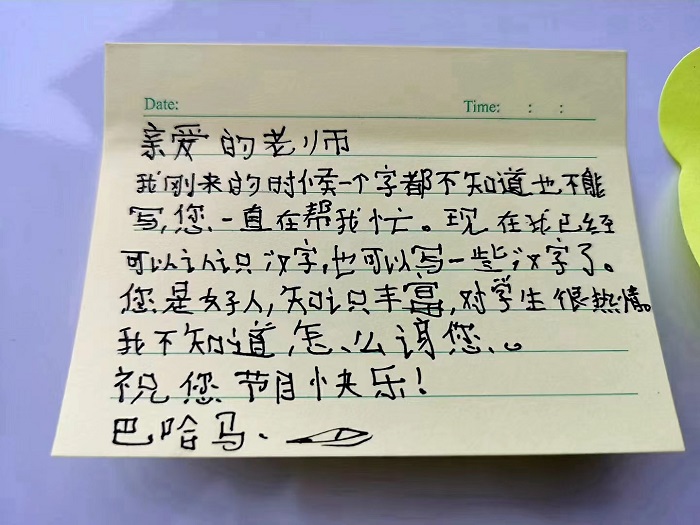 Date: Time: : :
亲爱的老师
我刚来的时候一个字都不知道也不能
写,您一直在帮我忙。现在我已经
可以认识汉字,也可以写一些汉字了。
您是好人,知识丰富,对学生很热情。
我不知道,怎么谢您。
祝您节目快乐!
巴哈马.